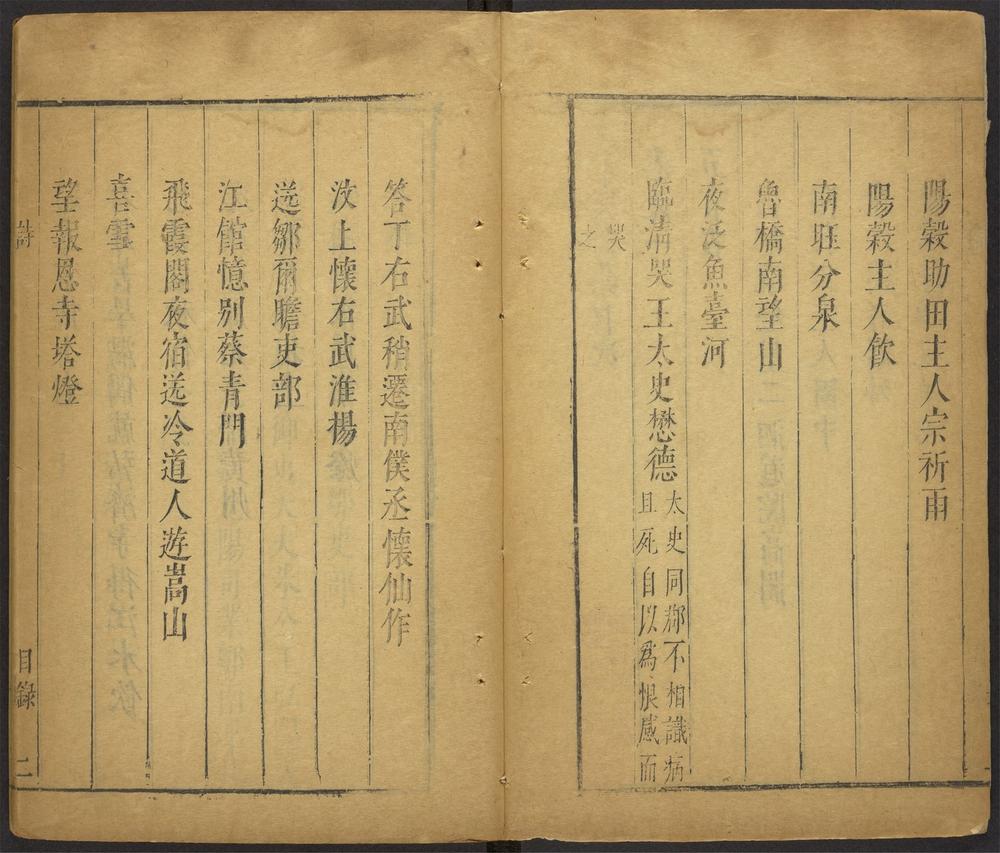 陽穀助田主人宗祈雨
陽穀主人飲
南旺分泉
魯橋南望山
夜泛魚臺河
臨清哭王太史懋德
太史同郡不相識病
且死自以爲恨感而
哭
之
答丁右武稍遷南僕丞懷仙作
汶上懷右武淮揚
送鄒爾瞻吏部
江館憶別蔡青門
飛霞閣夜宿送冷道人遊嵩山
喜霽
望報恩寺塔燈
詩
目錄
二